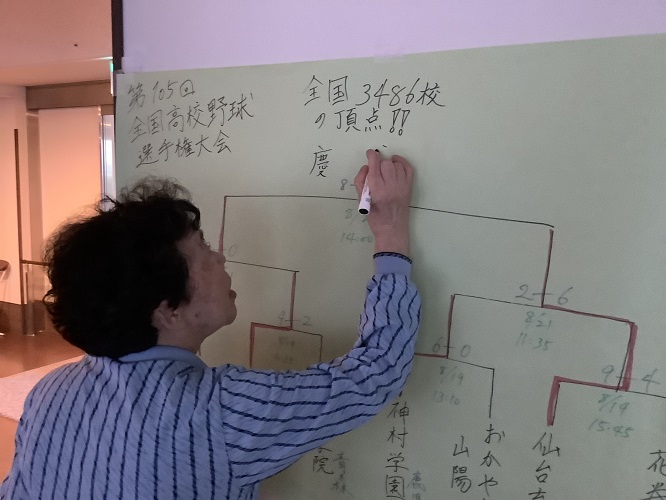 第105回
全国高校野球
選手権大会
全国3486校
の頂点!!
慶
8-
14:00
0
2-6
8/21
11:35
9-2
6-0
8/19
9-4
8/19
15:45
神村学園
おかや
山陽
仙台
院